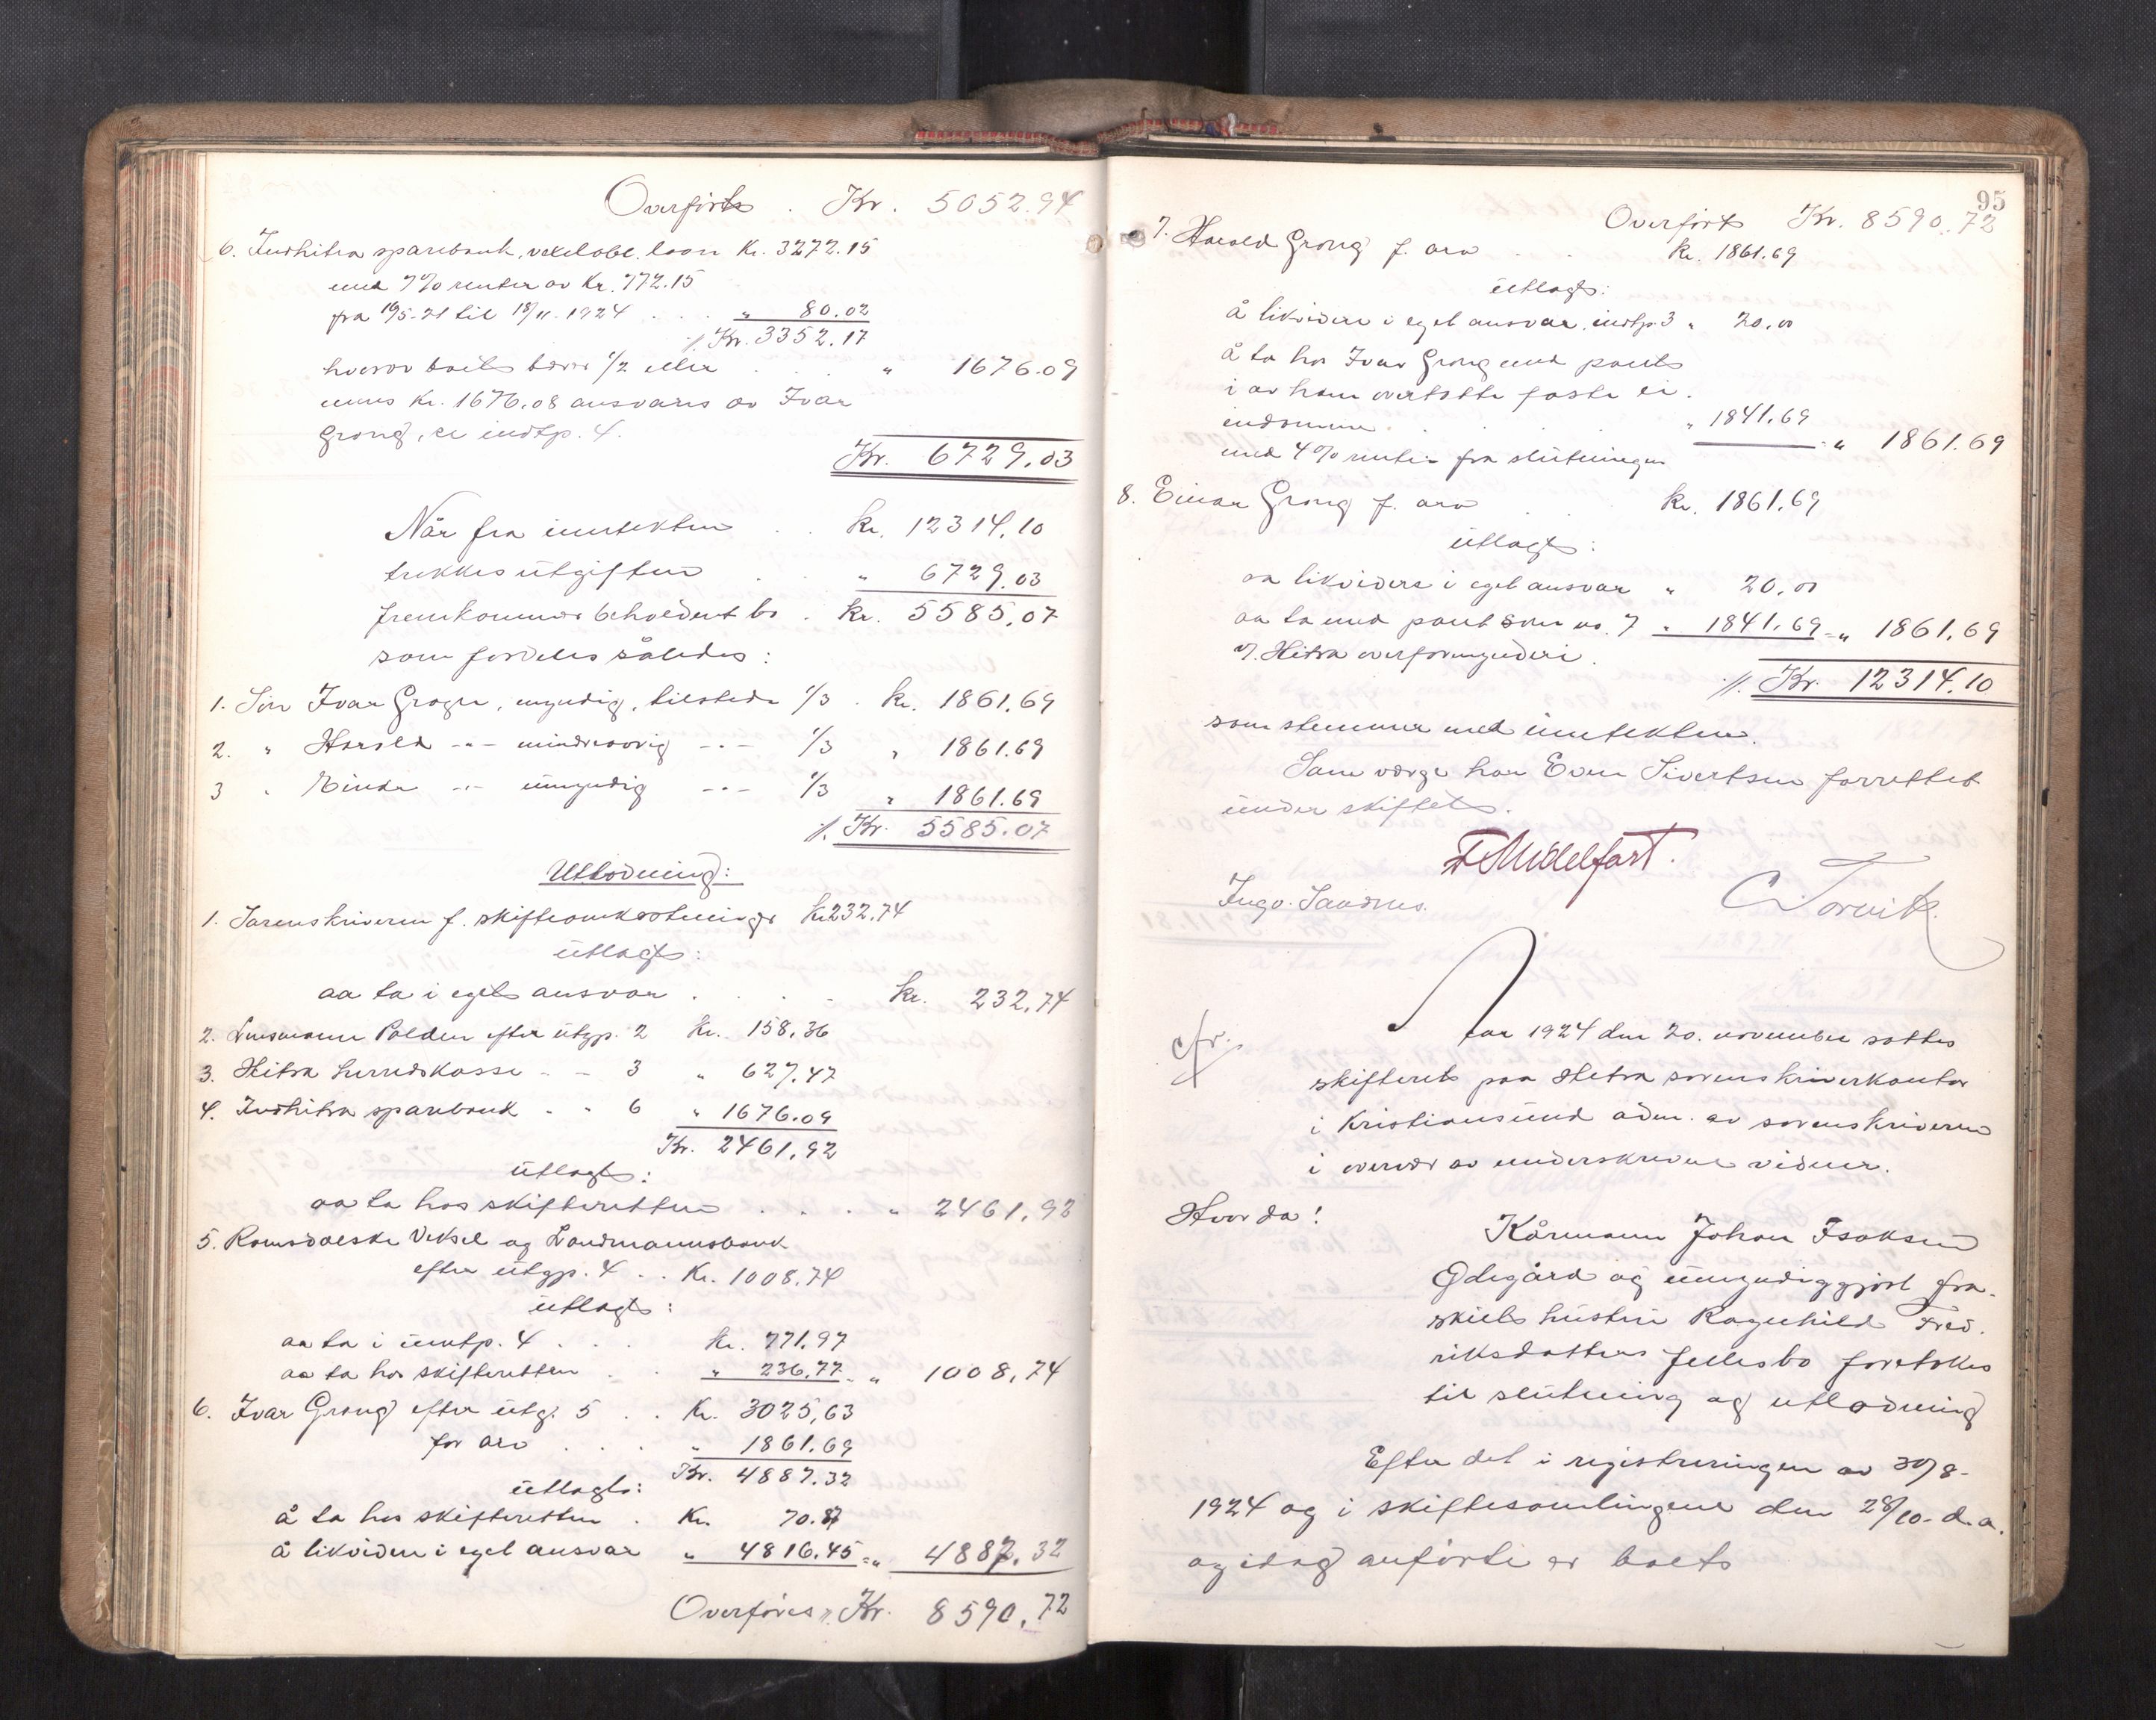 Overførts . Kr. 5052.94
6. Indhitra sparebank, vekelobl. laan Kr. 3272.15
med 7% renter av Kr. 772.15
fra 19/5-21 til 18/11.1924 . . . " 80.02
/. Kr. 3352.17
hvorav boets bærer 1/2 eller . . " 1676.09
mens Kr. 1676.08 ansvares av Ivar
Grong, se indtp. 4.
Kr. 6729.03
Når fra inntekten . . kr. 12314.10
trekkes utgiften . " 6729.03
fremkommer beholdent bo . kr. 5585.07
som fordeles således:
1. Søn Ivar Grogn, myndig, tilstede 1/3 . kr. 1861.69
2. " Harald -"- mindreaarig -"- 1/3 " 1861.69
3 " Einar -"- umyndig -"- 1/3 " 1861.69
/. Kr. 5585.07
Utlodning:
1. Sorenskriveren f. skifteomkostninger kr 232.74
utlagt:
aa ta i eget ansvar . . . . kr. 232.74
2. Lensmann Palden efter utgp. 2 Kr. 158.36
3. Hitra herredskasse - - 3 " 627.47
4. Indhitra sparebank - " 6 " 1676.09
Kr. 2461.92
utlagt:
aa ta hos skifteretten . . . " 2461.92
5. Romsdalske Veksel og Landmannsbank
efter utgp. 4 . . Kr. 1008.74
utlagt:
aa ta i inntp. 4 . . . kr. 771.97
aa ta hos skifteretten . . " 236.77 = " 1008.74
6. Ivar Grong efter utg. 5 . . Kr. 3025,63
for arv . . . " 1861.69
Kr. 4887.32
utlagt:
å ta hos skifteretten . Kr. 70.87
å likvidere i eget ansvar " 4816.45 = " 4887.32
Overføres /. Kr. 8590.72
95
Overført Kr. 8590.72
7. Harald Grong f. arv . . kr. 1861.69
utlagt:
å likvidere i eget ansvar, indtp. 3 " 20.00
å ta hos Ivar Grong med pant
i av ham overtatte faste ei-
endomme . . . " 1841.69
" 1861.69
med 4% renter fra slutningen
8. Einar Grong f. arv . kr. 1861.69
utlagt:
aa likvidere i eget ansvar " 20.00
aa ta med pant som no. 7 " 1841.69 = " 1861.69
v. Hitra overformynderi.
/. Kr. 12314.10
som stemmer med inntekten.
Som verge har Even Sivertsen forrettet
under skiftet.
F Midelfart.
Ingv. Sandnes.
C Torvik
cfr.
Aar 1924 den 20. november sattes
skifterett paa Hitra sorenskriverkontor
i Kristiansund adm. av sorenskriveren
i overvær av underskrevne vidner.
Hvor da!
Kårmann Johan Isaksen
Ødegård og umyndiggjort fra-
skilt hustru Ragnhild Fred-
riksdatters fellesbo foretokes
til slutning og utlodning
Efter det i registreringen av 30/8-
1924 og i skiftesamlingene den 28/10- d.a.
og idag anførte er boets